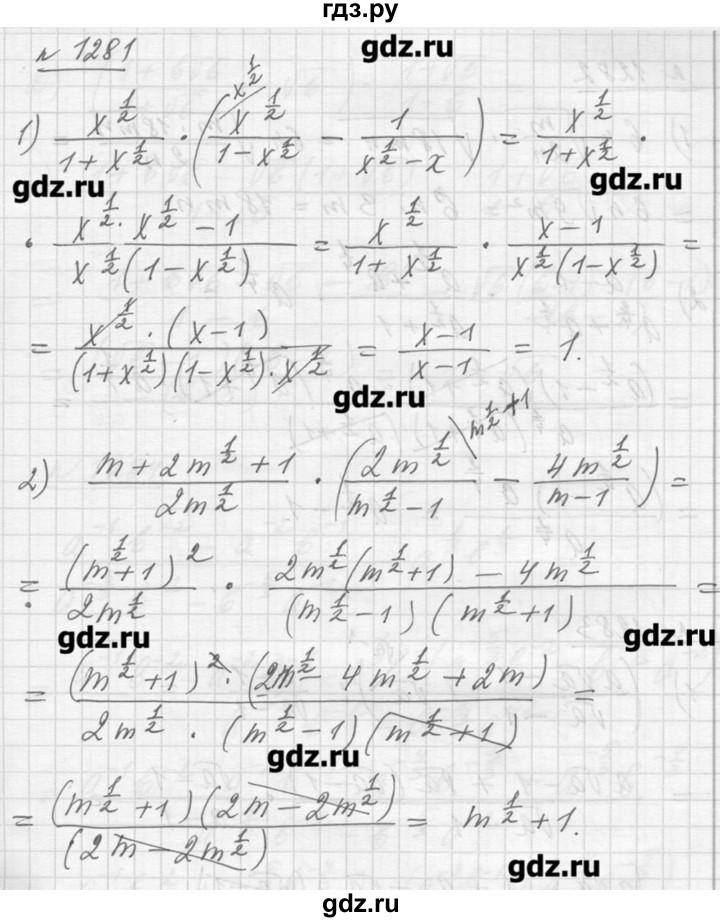 гдз.ру
gdz.ru
№ 1281
1) x^{1/2}/(1+x^{1/2}) · (x^{1/2}/(1−x^{1/2}) − 1/(x^{1/2}−x)) = x^{1/2}/(1+x^{1/2}) ·
x^{1/2}
gdz.ru
gdz.ru
· (x^{1/2} · x^{1/2} − 1)/(x^{1/2}(1−x^{1/2})) = x^{1/2}/(1+x^{1/2}) · (x−1)/(x^{1/2}(1−x^{1/2})) =
= (x^{1/2} · (x−1))/((1+x^{1/2})(1−x^{1/2}) · x^{1/2}) = (x−1)/(x−1) = 1.
gdz.ru
2) (m+2m^{1/2}+1)/(2m^{1/2}) · (2m^{1/2}/(m^{1/2}−1) − 4m^{1/2}/(m−1)) =
m^{1/2}+1
= (m^{1/2}+1)^2/(2m^{1/2}) · (2m^{1/2}(m^{1/2}+1) − 4m^{1/2})/((m^{1/2}−1)(m^{1/2}+1)) =
gdz.ru
gdz.ru
= ((m^{1/2}+1)^2 · (2m^{1/2} − 4m^{1/2} + 2m))/(2m^{1/2} · (m^{1/2}−1)(m^{1/2}+1)) =
gdz.ru
= ((m^{1/2}+1)(2m − 2m^{1/2}))/((2m − 2m^{1/2})) = m^{1/2}+1.
gdz.ru
gdz.ru